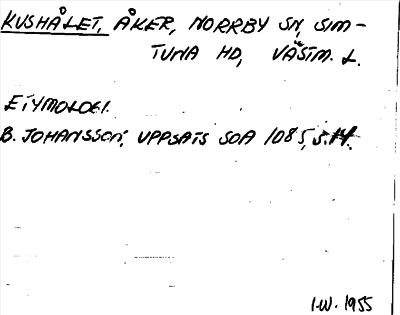 KUSHÅLET, ÅKER, NORRBY SN, SIM-
TUNA HD, VÄSTM. L.
ETYMOLOGI.
B. JOHANSSON, UPPSATS SOA 1085, S.14.
I.W. 1955